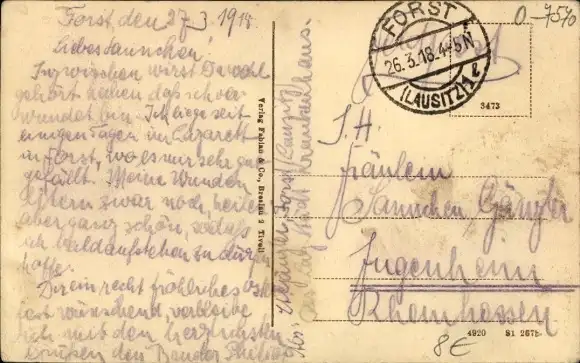 Forst den 27.3.1918
Liebes Hannchen!
Inzwischen wirst Du wohl
gehört haben das ich ver-
wundet bin. Ich liege seit
einigen Tagen im Lazarett
in Forst, wo es mir sehr gut
gefällt. Meine Wunden
eitern zwar noch, heilen
aber ganz schön, sodass
ich bald aufstehen zu dürfen
hoffe.
Dir ein recht fröhliches Ost-
fest wünschend, verbleibe
ich mit den herzlichsten
Grüßen Dein Bruder Philipp
Verlag Fabian & Co., Breslau 2 Tivoli
Forst (Lausitz)
Krankenhaus
FORST
26.3.18.4-5N
(LAUSITZ)1
0-7570
3473
S.H.
Fräulein
Sannchen Gänzler
Jugenheim
Rheinhessen
4920 S1 267b
8€